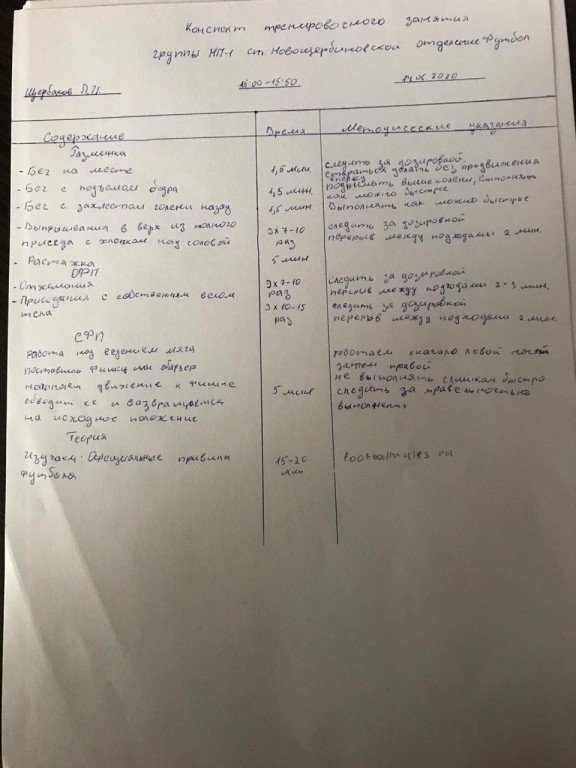 Конспект тренировочного занятия
группы НП-1 ст. Новощербиновской отделение Футбол
Щербаков 15:00-15:50 2020
Содержание Время Методические указания
Разминка
- Бег на месте 1,5 мин следить за дозировкой
стараться делать без продвижения
вперед
- Бег с подъемом бедра 1,5 мин поднимать выше колени, выполнять
как можно быстрее
- Бег с захлестом голени назад 1,5 мин Выполнять как можно быстрее
- Выпрыгивания в верх из полного 3х7-10 следить за дозировкой
приседа с хлопком над головой раз перерыв между подходами 2 мин.
- Растяжка 5 мин
ОФП
- Отжимания 3х7-10 следить за дозировкой
раз перерыв между подходами 2-3 мин.
- Приседания с собственным весом 3х10-15 следить за дозировкой
тела раз перерыв между подходами 2 мин.
СФП
Работа над ведением мяча работаем сначала левой ногой
поставить фишку или барьер затем правой
начинаем движение к фишке не выполнять слишком быстро
обводим ее и возвращаемся 5 мин следить за правильностью
на исходное положение выполнения
Теория
Изучаем: Официальные правила 15-20 footballrules.ru
футбола мин